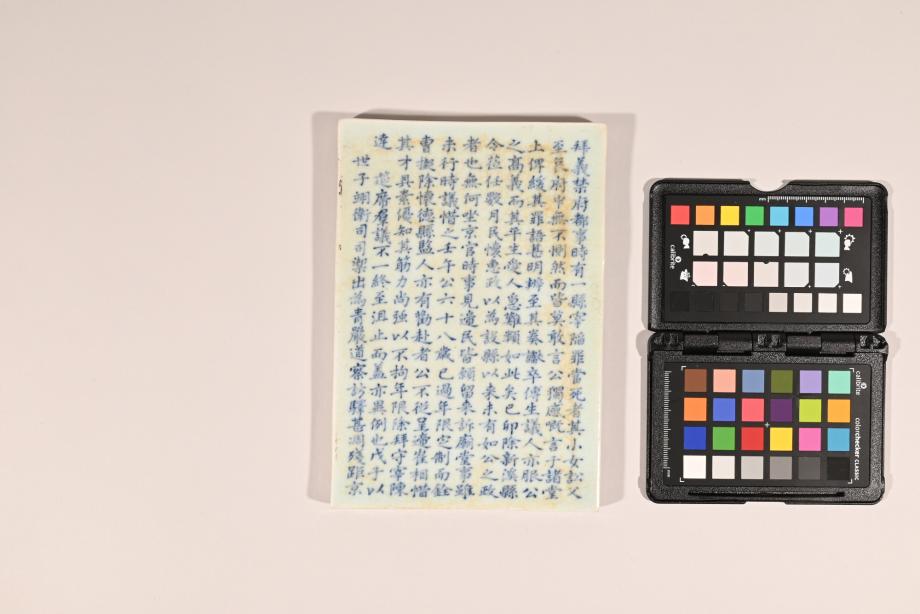 拜義禁府都事時有一縣宰陷罪當死者其小女訟父
至府中無不惻然而皆莫敢言公獨感慨言于諸堂
上俾緩其罪語甚明辨至其奏讞卒傅生議人亦服公
之高義而其平生愛人急難類如此矣已卯除新溪縣
令莅任數月民懷惠政以為設縣以来未有如公之政
者也無何坐京官時事見遞民皆願留来訴廟堂事雖
未行時議惜之壬午公六十八歲已過年限定制而銓
曹擬除懷德縣監人亦有勸赴者公不從呈遞崔相惜
其才具素優知其筋力尚強以不拘年限除拜守宰陳
達 筵席羣議不一終至沮止而蓋亦異例也戊子以
世子翊衛司司禦出為青巖道察訪驛甚凋殘距京
mm
calibrite
calibrite
colorchecker CLASSIC
mm